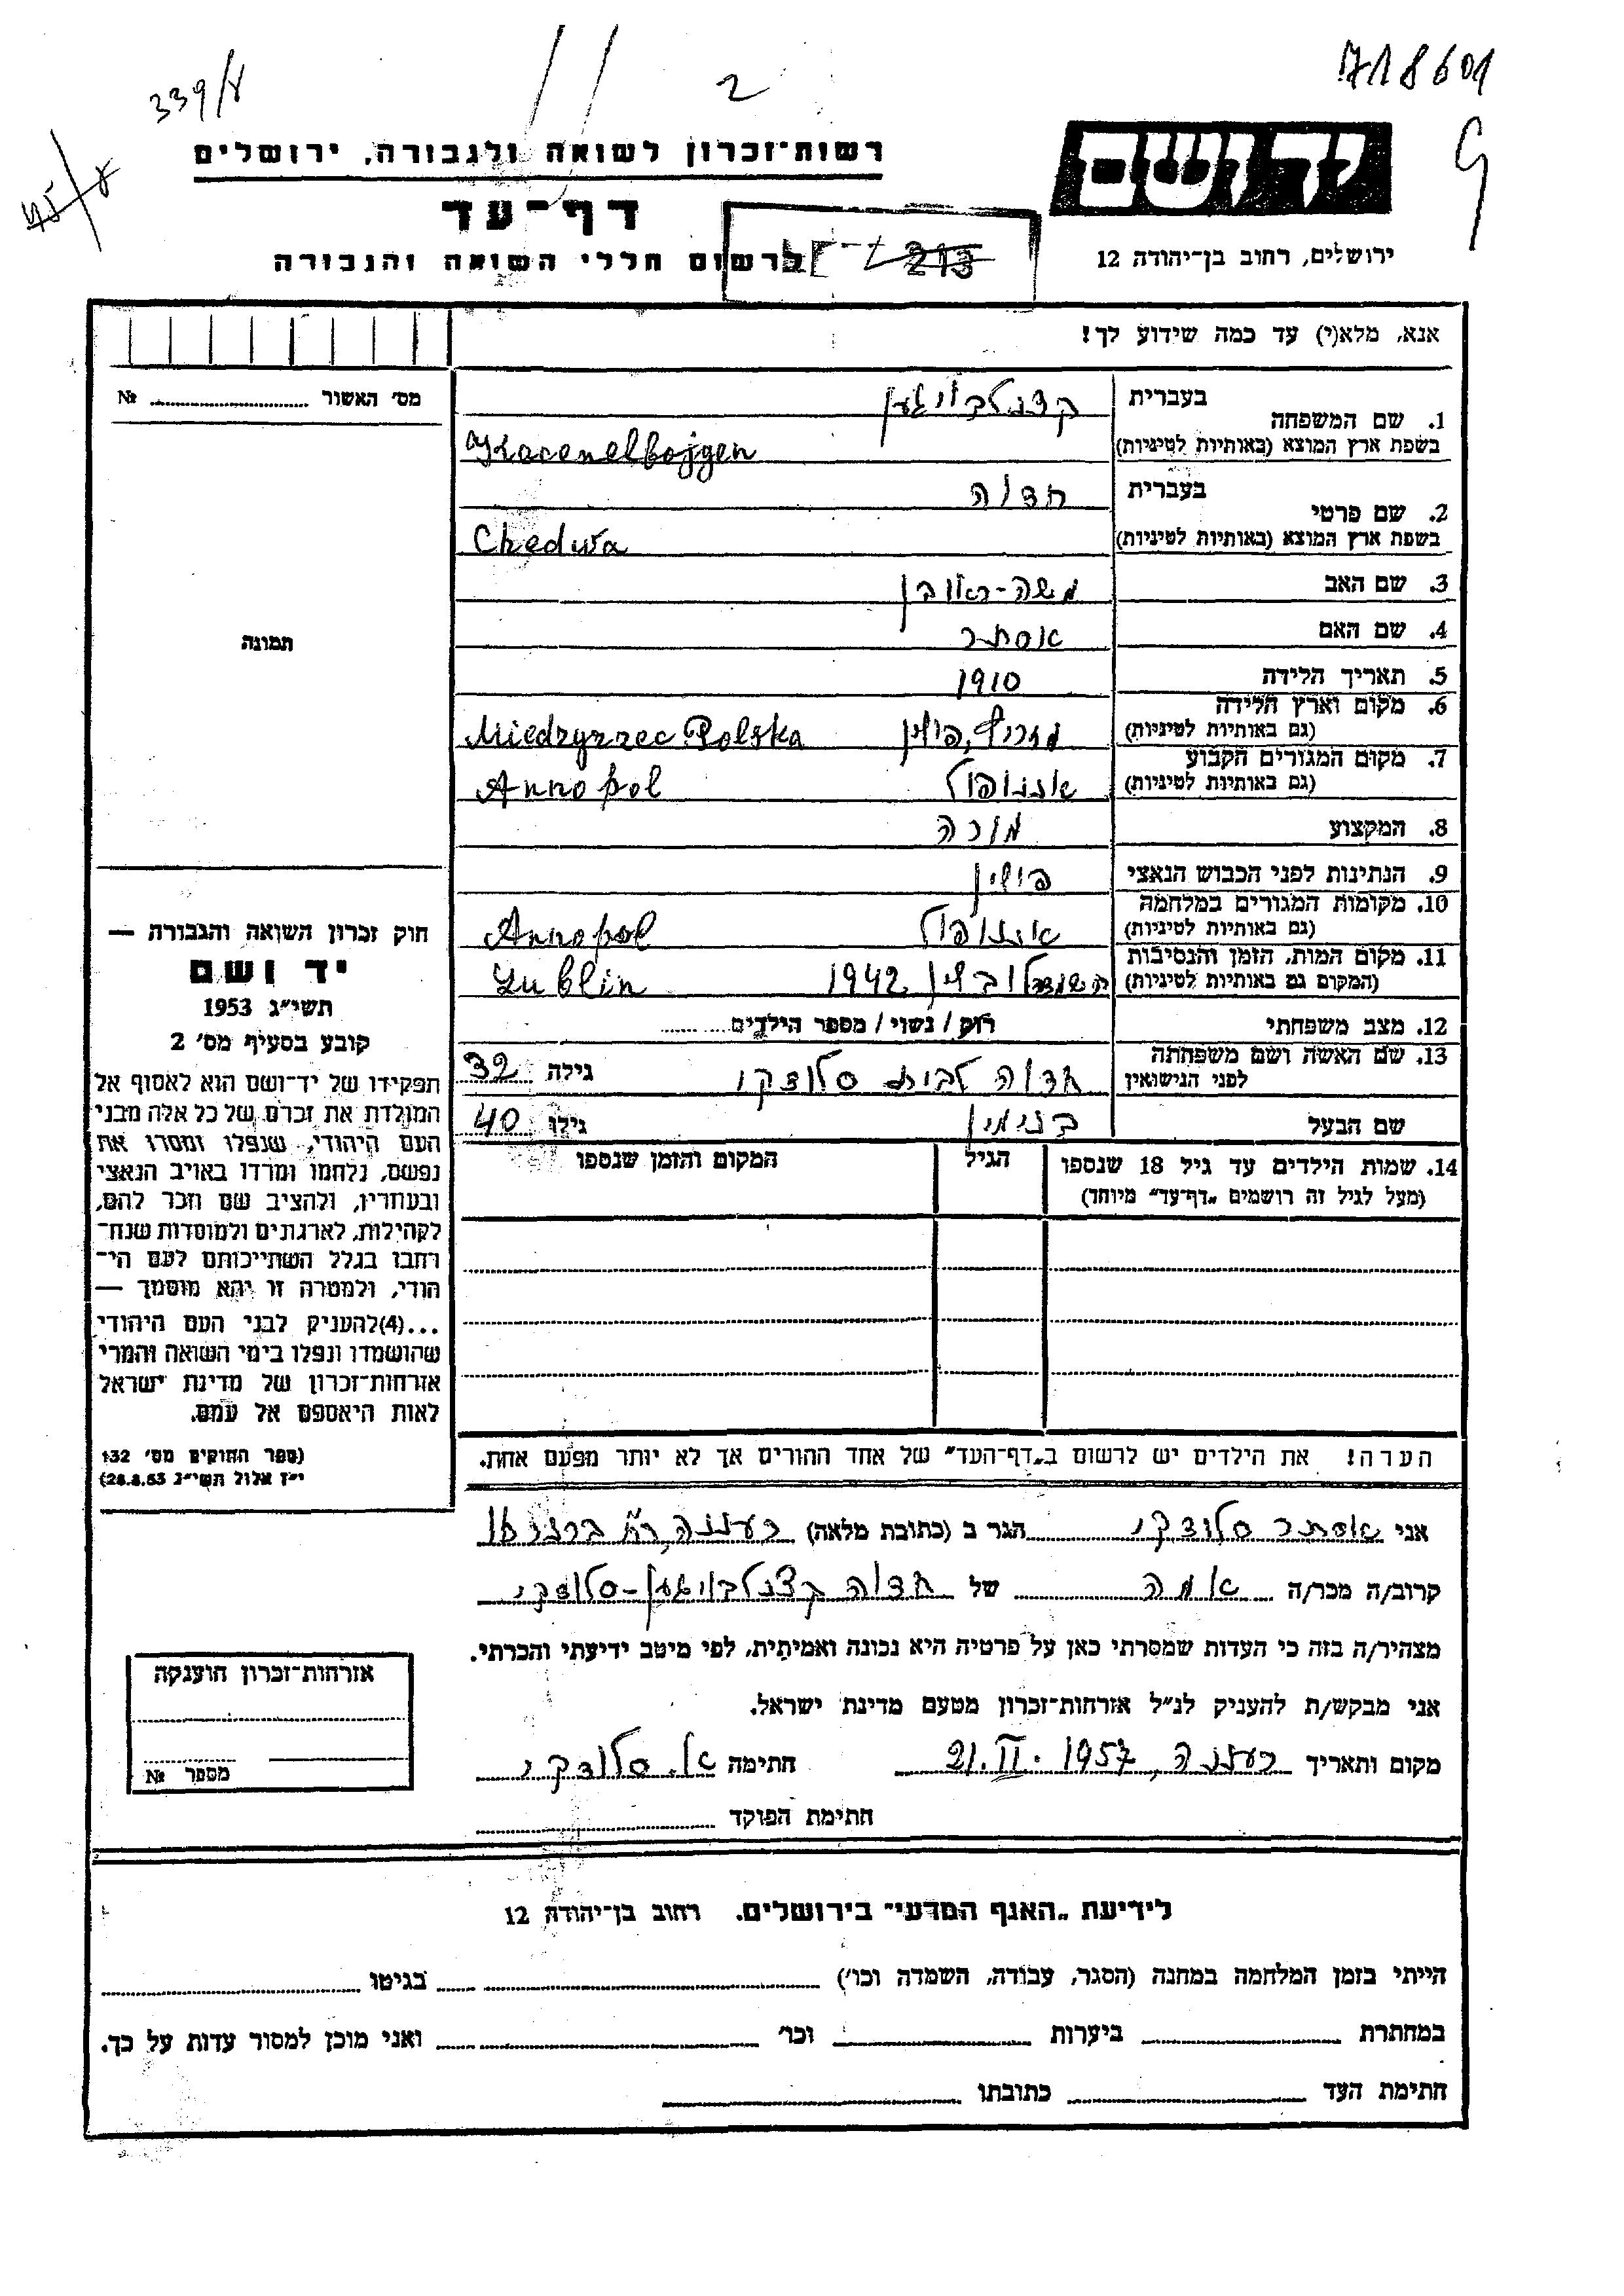 339/ץ
2
718601
רשות־זכרון לשואה ולגבורה, ירושלים
יד ושם
דף־עד
לרשום חללי השואה והגבורה
213
ירושלים, רחוב בן־יהודה 12
אנא, מלא(י) עד כמה שידוע לך!
מס׳ האשור № ..........
1. שם המשפחה בעברית קצנלבויגען
בשפת ארץ המוצא (באותיות לטיניות) Kacenelbojgen
2. שם פרטי בעברית חדוה
בשפת ארץ המוצא (באותיות לטיניות) Chedwa
3. שם האב משה-ראובן
4. שם האם אסתר
5. תאריך הלידה 1910
6. מקום וארץ הלידה
(גם באותיות לטיניות) פולין Miedzyrzec Polska
7. מקום המגורים הקבוע
(גם באותיות לטיניות) אננופול Annopol
8. המקצוע מורה
9. הנתינות לפני הכבוש הנאצי פולין
10. מקומות המגורים במלחמה
(גם באותיות לטיניות) אננופול Annopol
11. מקום המות, הזמן והנסיבות
(המקום גם באותיות לטיניות) לובלין 1942 Lublin
12. מצב משפחתי רוק / נשוי / מספר הילדים ........
13. שם האשה ושם משפחתה
לפני הנישואין חדוה לבית סלודקי גילה 32
שם הבעל בנימין גילו 40
14. שמות הילדים עד גיל 18 שנספו הגיל המקום והזמן שנספו
(מעל לגיל זה רושמים „דף־עד״ מיוחד)
תמונה
חוק זכרון השואה והגבורה —
יד ושם
תשי״ג 1953
קובע בסעיף מס׳ 2
תפקידו של יד־ושם הוא לאסוף אל
המולדת את זכרם של כל אלה מבני
העם היהודי, שנפלו ומסרו את
נפשם, נלחמו ומרדו באויב הנאצי
ובעוזריו, ולהציב שם וזכר להם,
לקהילות, לארגונים ולמוסדות שנח־
רבו בגלל השתייכותם לעם הי־
הודי, ולמטרה זו יהא מוסמך —
...(4)להעניק לבני העם היהודי
שהושמדו ונפלו בימי השואה והמרי
אזרחות־זכרון של מדינת ישראל
לאות היאספם אל עמם.
(ספר החוקים מס׳ 132
י״ז אלול תשי״ג 28.8.53)
הערה! את הילדים יש לרשום ב„דף־העד״ של אחד ההורים אך לא יותר מפעם אחת.
אני אסתר סלודקי הגר ב (כתובת מלאה) רעננה
קרוב/ה מכר/ה אמה של חדוה קצנלבויגען-סלודקי
מצהיר/ה בזה כי העדות שמסרתי כאן על פרטיה היא נכונה ואמיתית, לפי מיטב ידיעתי והכרתי.
אני מבקש/ת להעניק לנ״ל אזרחות־זכרון מטעם מדינת ישראל.
מקום ותאריך רעננה, 21.II.1957 חתימה א. סלודקי
חתימת הפוקד
אזרחות־זכרון הוענקה
מספר №
לידיעת „האגף המדעי״ בירושלים, רחוב בן־יהודה 12
הייתי בזמן המלחמה במחנה (הסגר, עבודה, השמדה וכו׳) .......... בגיטו ..........
במחתרת .......... ביערות .......... וכו׳ .......... ואני מוכן למסור עדות על כך.
חתימת העד .......... כתובתו ..........